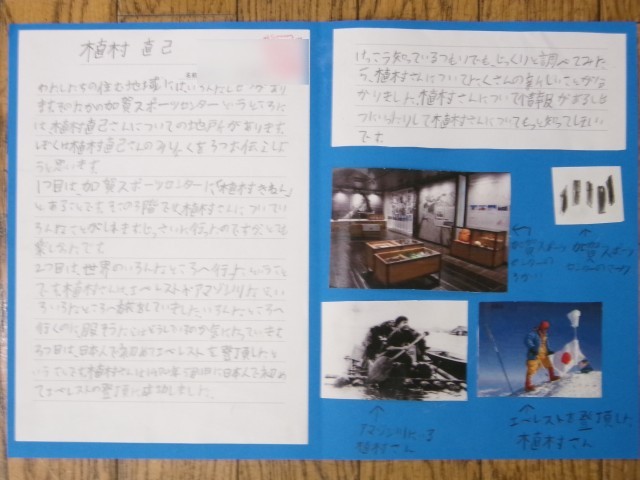 植村 直己
わたしたちの住む地域にはいろんな
ます。そのなかの加賀スポーツセンターというところに
は、植村直己さんについての地戸があります。
ぼくは植村直己さんのみりょくを3つお伝えしよ
うと思います。
1つ目は、加賀スポーツセンターに「植村
とあることです。その3階で植村さんについてい
ろんな
楽しかったです。
2つ目は、世界のいろんなところへ行ったということ
です。植村さんはエベレストやアマゾン川など、い
ろいろなところへ
行くのに服そうとかはどうしているのか気になっています。
3つ目は、日本人で初めてエベレストを登頂したと
いうことです。植村さんは1970年5月11日に日本人で初め
てエベレストの登頂に成功しました。
けっこう知っているつもりでも、じっくりと調べてみた
ら、植村さんについてたくさんの新しいことが分
かりました。植村さんについて情報があるしせ
つにいったりして植村さんについてもっと知ってほしい
です。
加賀スポーツ
センターの
加賀スポーツ
センターの
アマゾン川にいる
植村さん
エベレストを登頂した
植村さん